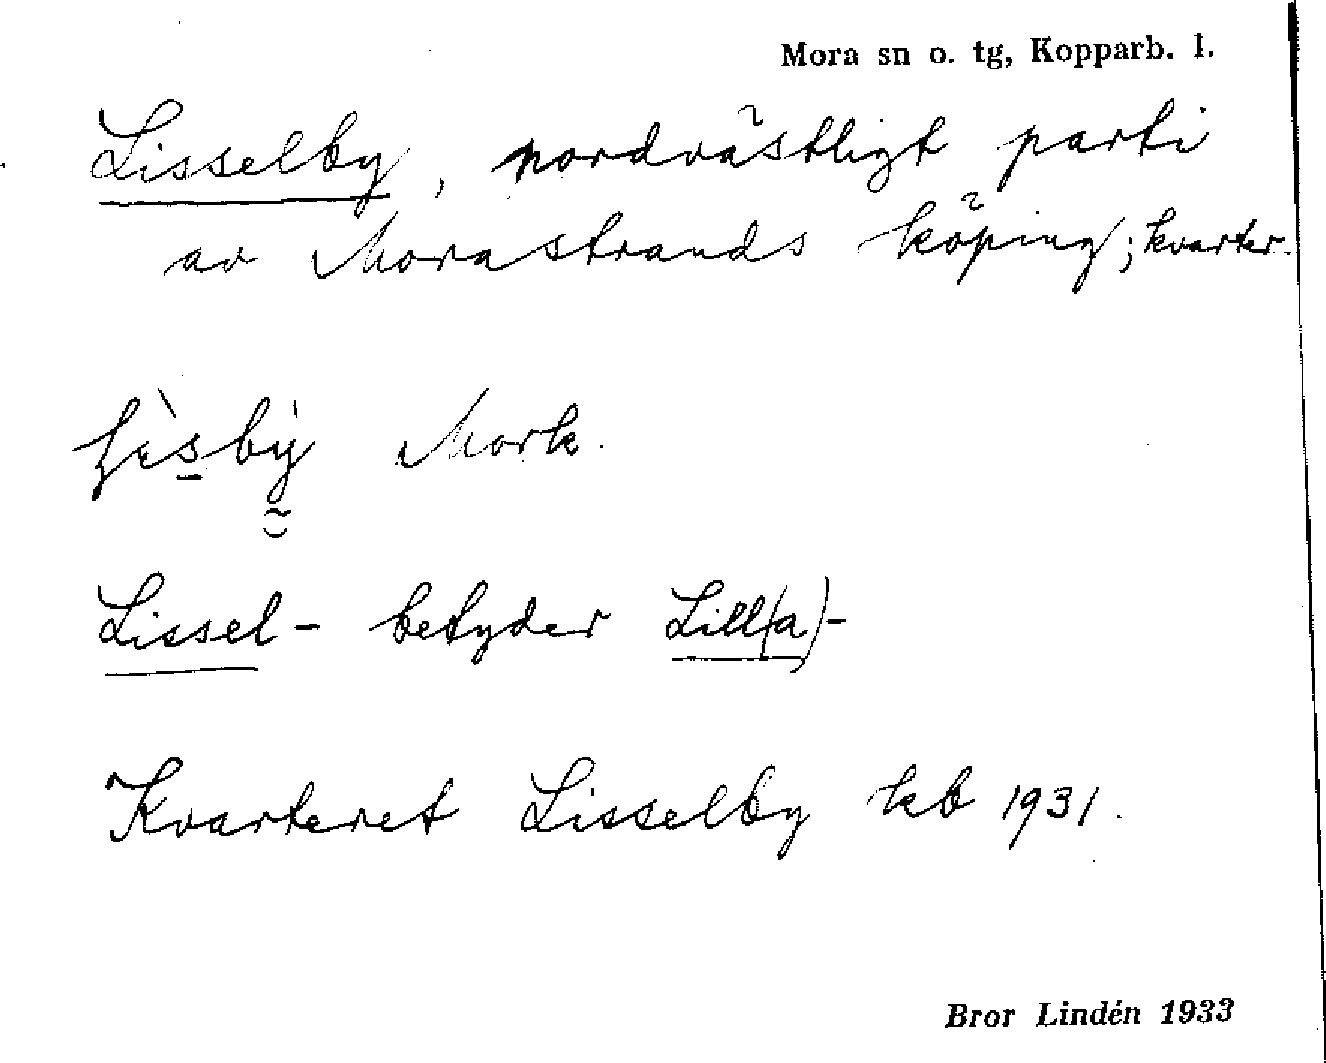 Mora sn o. tg, Kopparb. l.
Lisselby, nordvästligt parti
av Morastrands köping; kvarter.
Mork.
Lissel- betyder Lill(a)-
Kvarteret Lisselby kb 1931.
Bror Lindén 1933